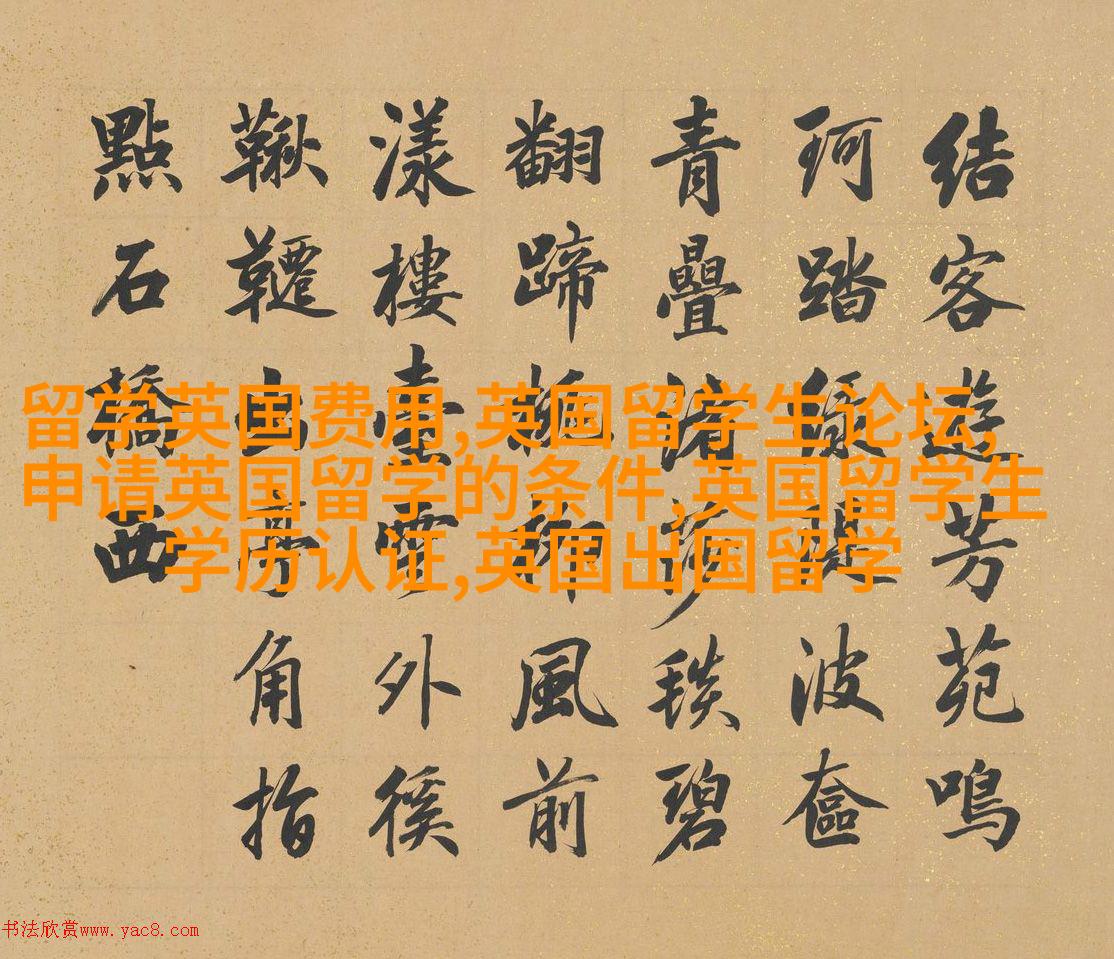 結客遊芳苑鳴
珂踏緑堤波奩
青疊渚莎毯碧
翻蹄柳風前
漾樓臺雲外徯
鞦韆出角指
點石橋西
留学英国费用,英国留学生论坛,
申请英国留学的条件,英国留学生
学历认证,英国出国留学
书法欣赏www.yac8.com